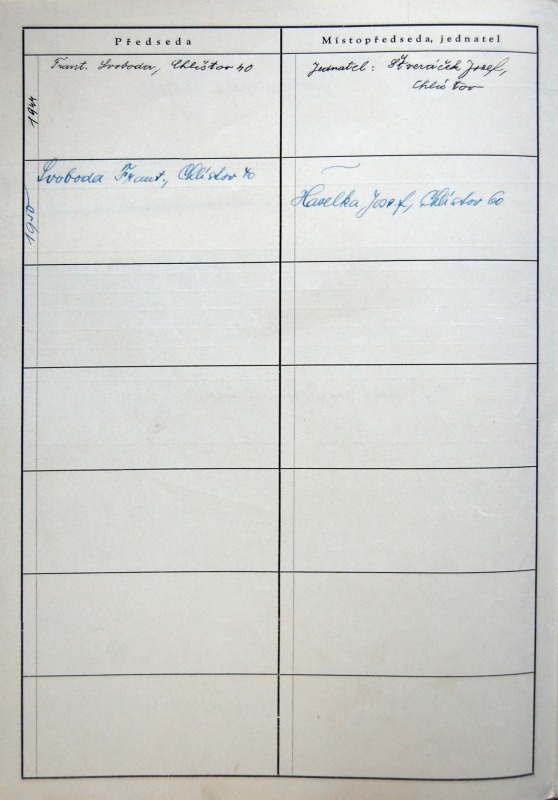 Předseda
Místopředseda, jednatel
1944
Frant. Svoboda, Chlístov 40
Jednatel: Štveráček Josef,
Chlístov
1950
Svoboda Frant., Chlístov 40
Havelka Josef, Chlístov 60